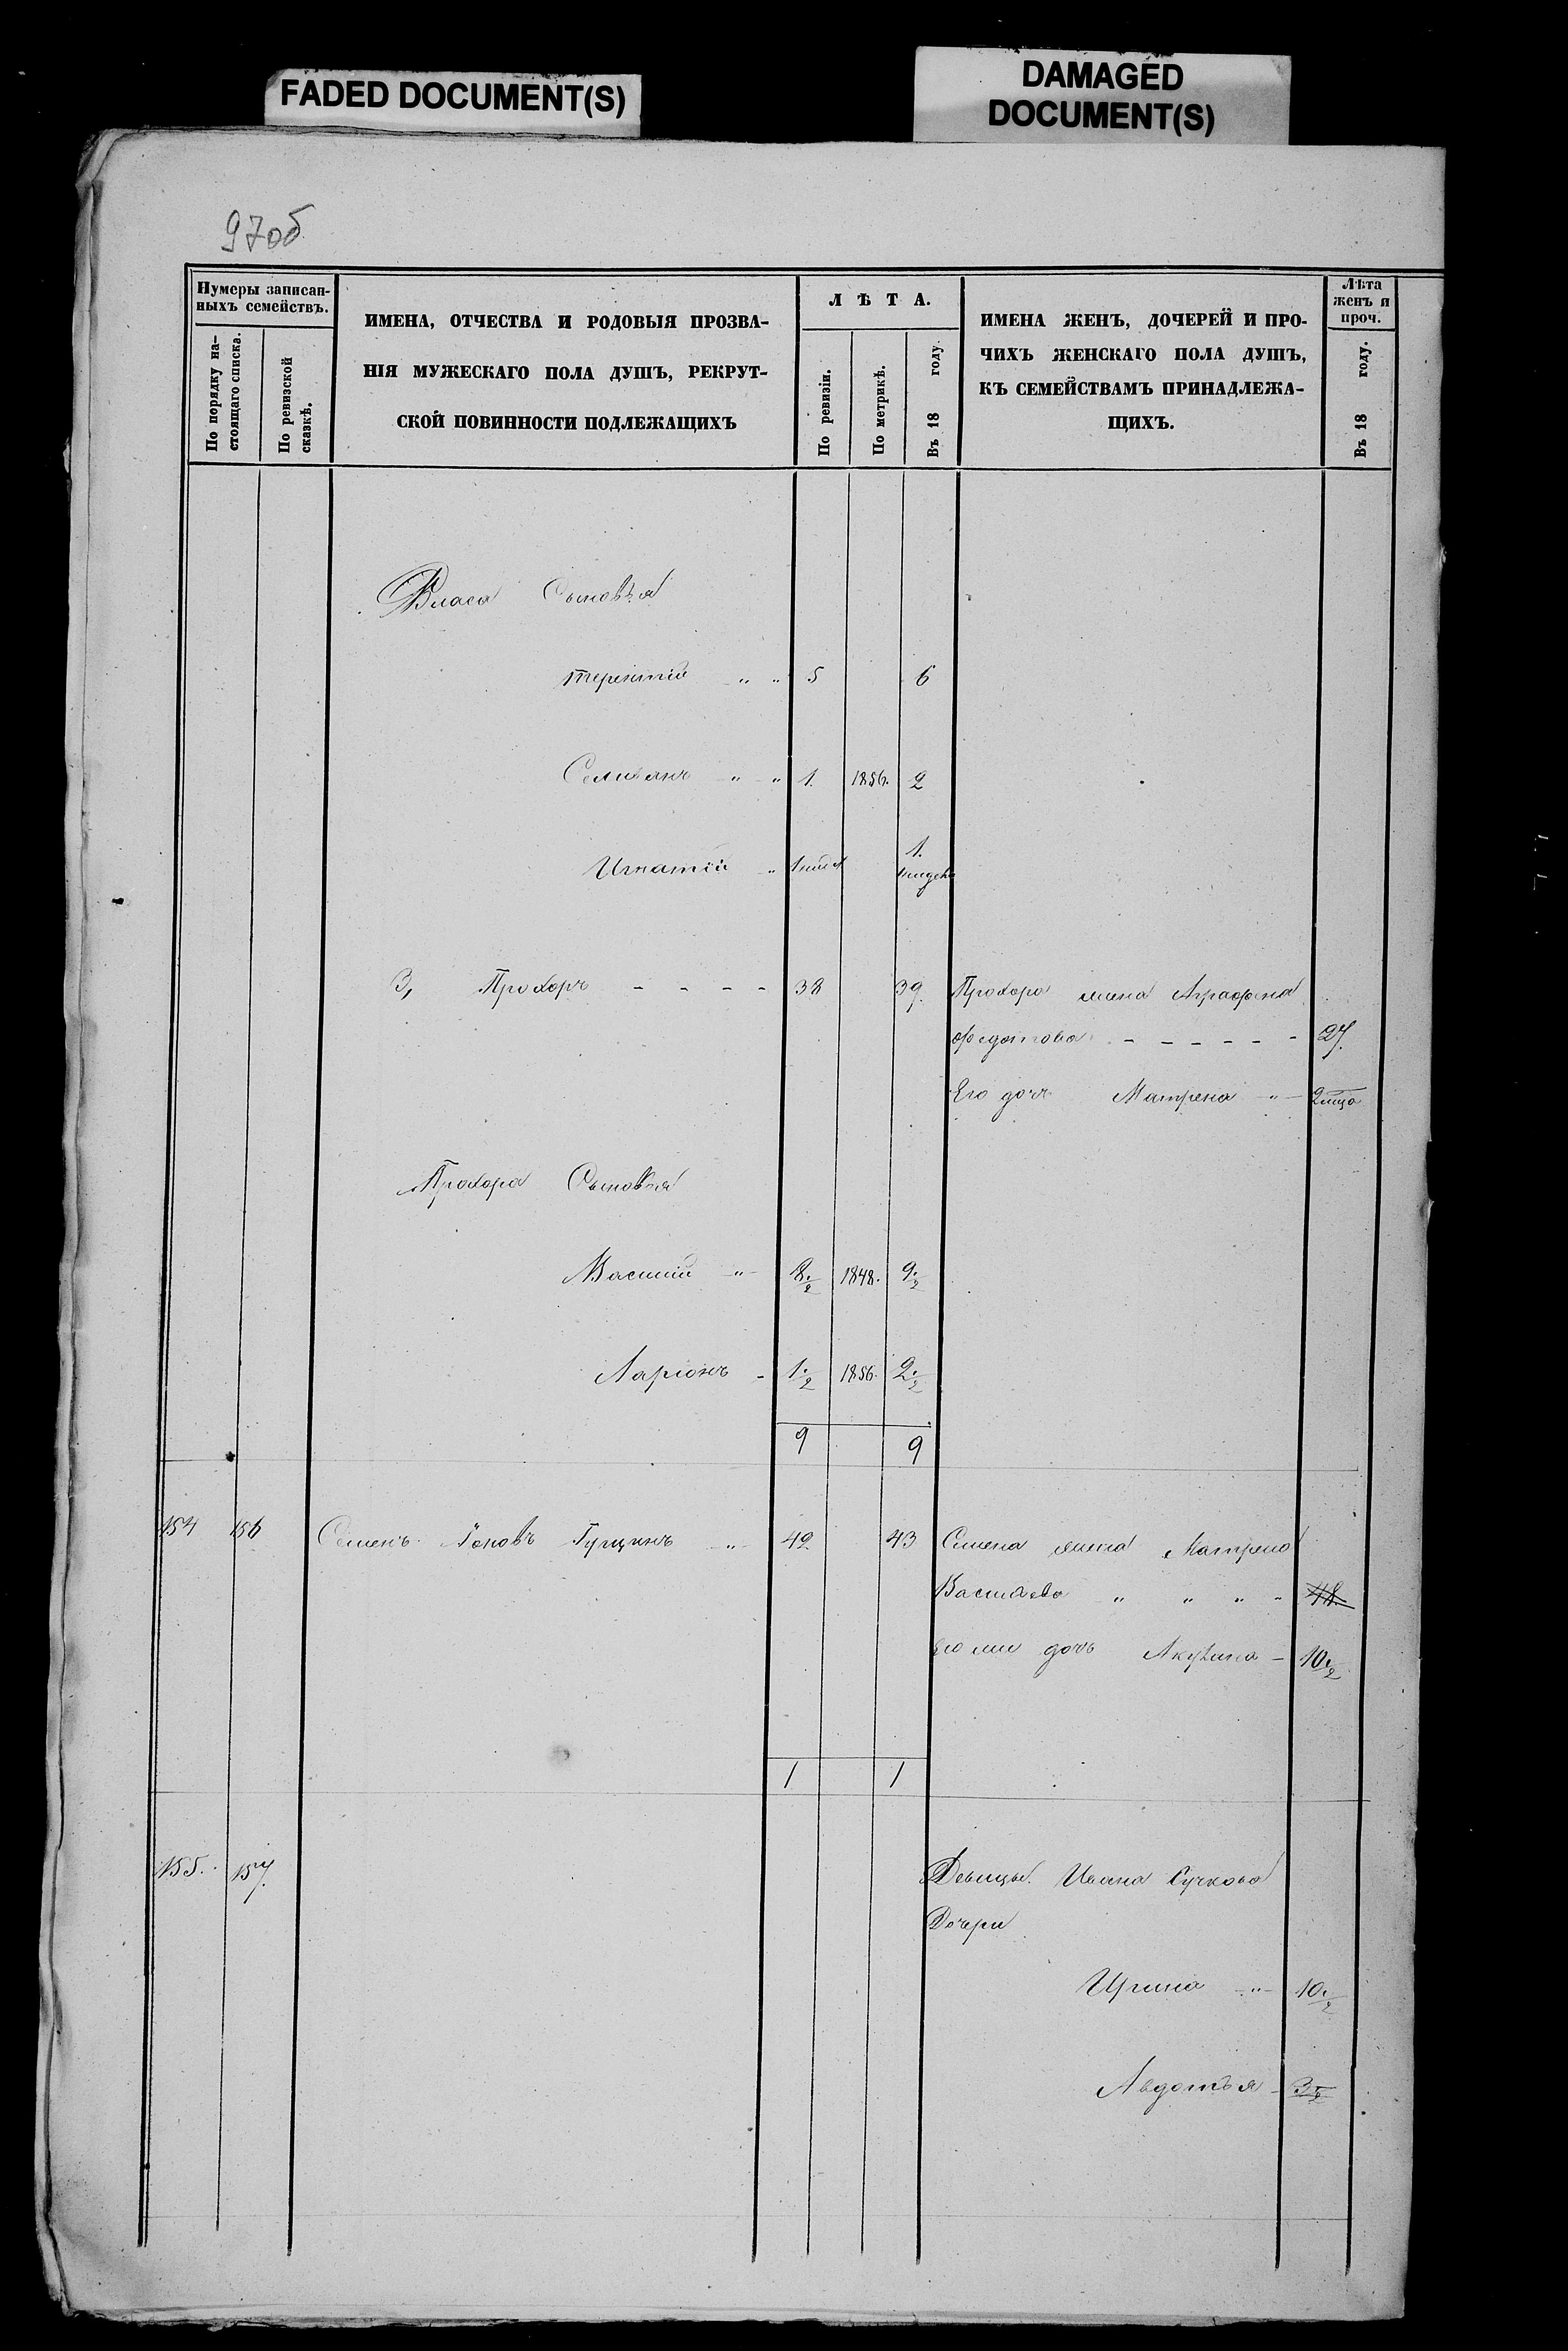 FADED DOCUMENT(S)
DAMAGED
DOCUMENT(S)
97об
Нумеры записан-
ныхъ семействъ.
По порядку на-
стоящаго списка.
По ревизской
сказкѣ.
ИМЕНА, ОТЧЕСТВА И РОДОВЫЯ ПРОЗВА-
НІЯ МУЖЕСКАГО ПОЛА ДУШЪ, РЕКРУТ-
СКОЙ ПОВИННОСТИ ПОДЛЕЖАЩИХЪ
ЛѢТА.
По ревизіи.
По метрикѣ.
Въ 18 году.
ИМЕНА ЖЕНЪ, ДОЧЕРЕЙ И ПРО-
ЧИХЪ ЖЕНСКАГО ПОЛА ДУШЪ,
КЪ СЕМЕЙСТВАМЪ ПРИНАДЛЕЖА-
ЩИХЪ.
Лѣта
женъ и
проч.
Въ 18 году.
Власа Сыновья
Терентій " " 5 6
Селиванъ " " 1. 1856. 2
Игнатій " 1.
3, Прохоръ - - - - 38 39. Прохора жена Аграфена
Федотова - - - - - - 27.
Его дочь Матрена " 2
Прохора Сыновья
Василій " 8./2 1848. 9./2
Ларіонъ - 1./2 1856. 2./2
9 9
154 156 Семенъ Іоновъ Гущинъ " 42 43 Семена жена Матрена
Васильева " " " " 48.
Его дочь Акулина - 10./2
1 1
155. 157. Девицы. Ивана Сучкова
Дочери
Ирина " 10./2
Авдотья - 3